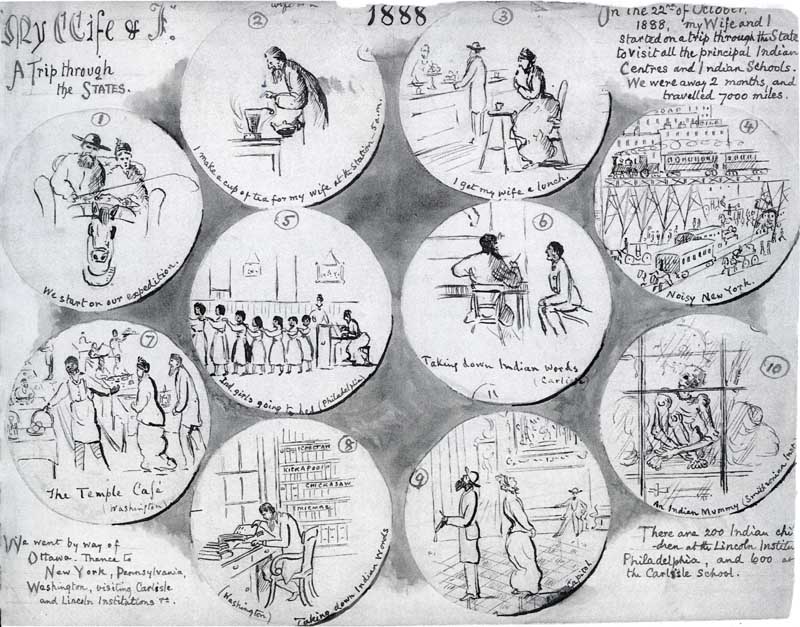 My Wife & I.
A Trip through
the STATES.
1888
On the 22nd of October,
1888, my Wife and I
started on a trip through the State
to visit all the principal Indian
Centres and Indian Schools.
We were away 2 months, and
travelled 7000 miles.
1
We start on our expedition.
2
I make a cup of tea for my wife at Station 5 a.m.
3
I get my wife a lunch.
4
Noisy New York.
5
Ind. girls going to bed (Philadelphia)
6
Taking down Indian words
(Carlisle)
11
7
The Temple Café
(Washington)
8
CHOCTAW
KICKAPOO
CHICKASAW
MICMAC
(Washington) Taking down Indian Words
9
Capitol
10
An Indian Mummy (Smithsonian Inst
We went by way of
Ottawa. Thence to
New York, Pennsylvania,
Washington, visiting Carlisle
and Lincoln Institutions &c.
There are 200 Indian chil
dren at the Lincoln Institu
Philadelphia, and 600 at
the Carlisle School.